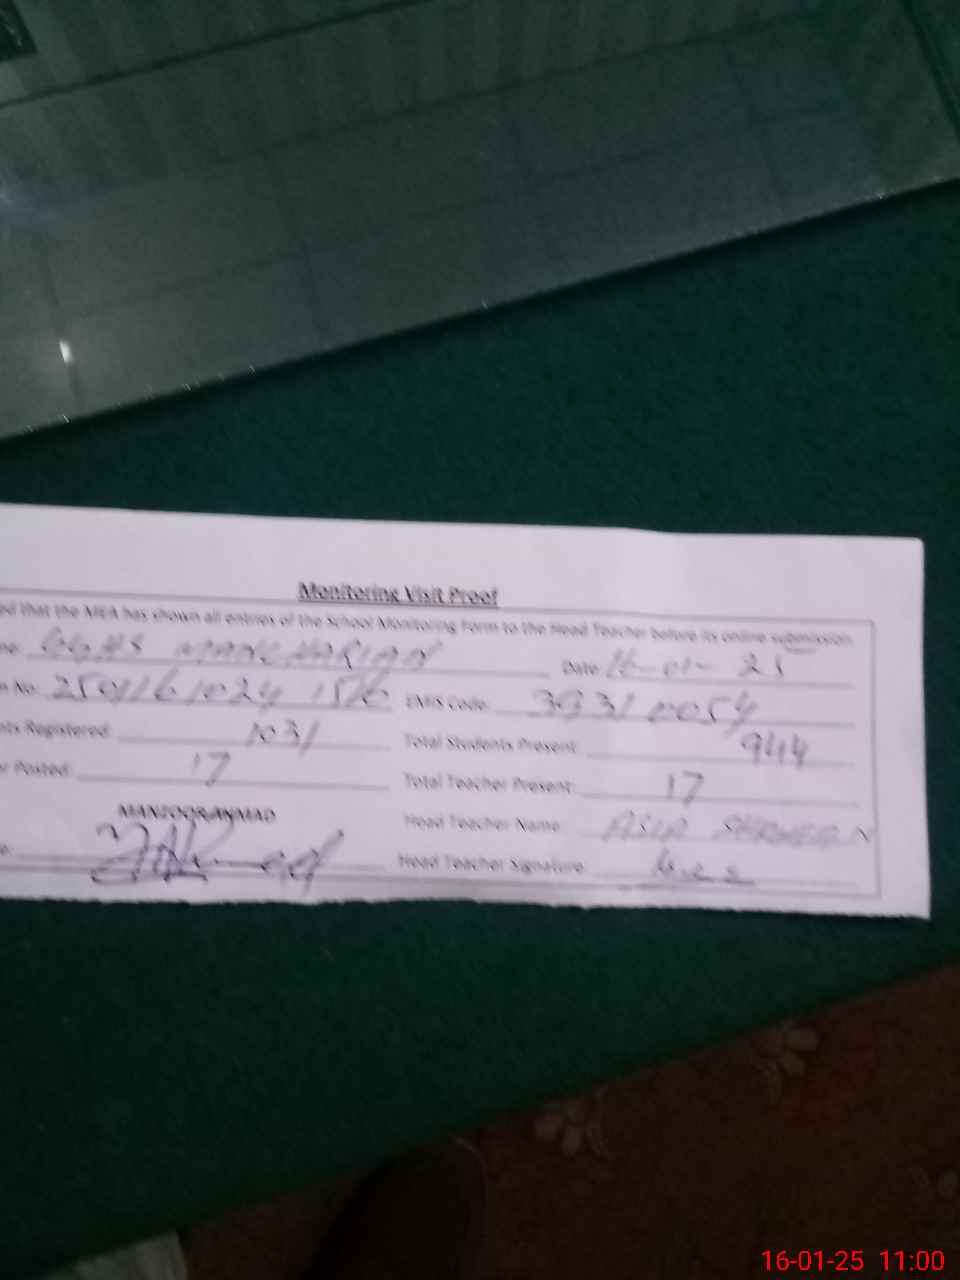 Monitoring Visit Proof
ed that the MEA has shown all entries of the School Monitoring Form to the Head Teacher before its online submission.
me: GGHS MANCHARIAN Date: 16-01-25
n No: EMIS Code: 39310054
nts Registered: 1031 Total Students Present: 944
r Posted: 17 Total Teacher Present: 17
MANZOOR AHMAD
Head Teacher Name: ASIA
Head Teacher Signature:
16-01-25 11:00